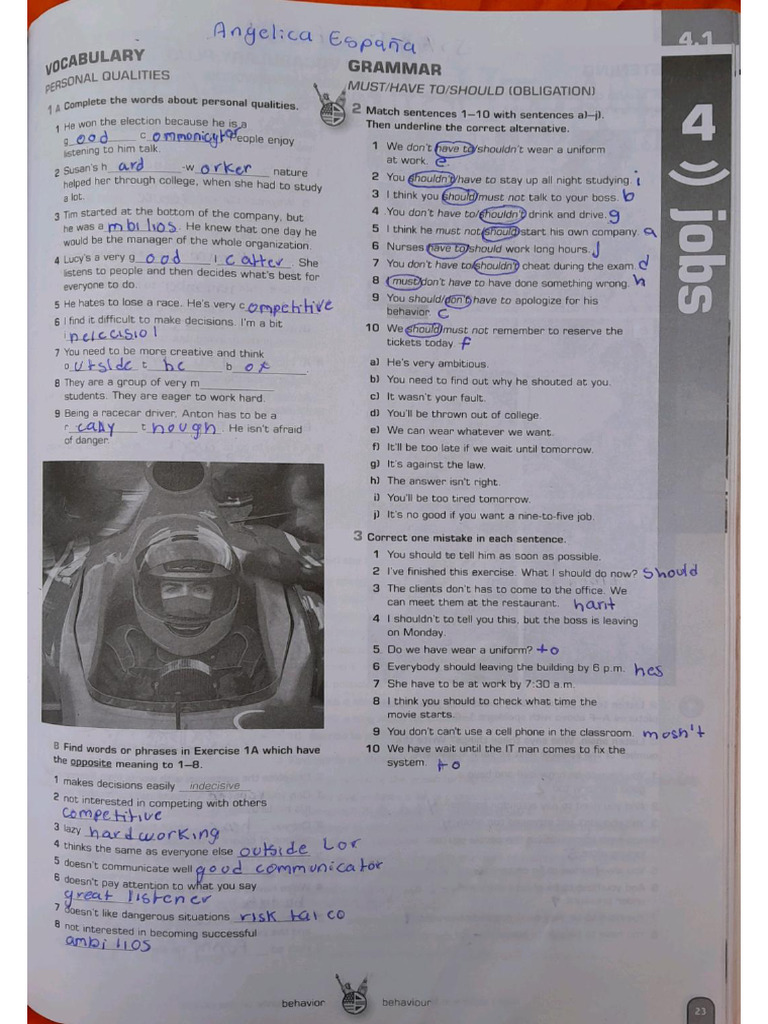 Angelica España
4.1
VOCABULARY
PERSONAL QUALITIES
1 A Complete the words about personal qualities.
1 He won the election because he is a
good communicator People enjoy
listening to him talk.
2 Susan's hard -worker nature
helped her through college, when she had to study
a lot.
3 Tim started at the bottom of the company, but
he was ambilios. He knew that one day he
would be the manager of the whole organization.
4 Lucy's a very good. She
listens to people and then decides what's best for
everyone to do.
5 He hates to lose a race. He's very competitive
6 I find it difficult to make decisions. I'm a bit
i
7 You need to be more creative and think
outside the box.
8 They are a group of very m
students. They are eager to work hard.
9 Being a racecar driver, Anton has to be a
r though. He isn't afraid
of danger.
B Find words or phrases in Exercise 1A which have
the opposite meaning to 1–8.
1 makes decisions easily indecisive
2 not interested in competing with others
competitive
3 lazy hardworking
4 thinks the same as everyone else outside Lor
5 doesn't communicate well good communicator
6 doesn't pay attention to what you say
great listener
7 doesn't like dangerous situations risk tai co
8 not interested in becoming successful
ambilios
GRAMMAR
MUST/HAVE TO/SHOULD (OBLIGATION)
2 Match sentences 1–10 with sentences a)–j).
Then underline the correct alternative.
1 We don't have to/shouldn't wear a uniform
at work. e
2 You shouldn't/have to stay up all night studying. i
3 I think you should/must not talk to your boss. b
4 You don't have to/shouldn't drink and drive. g
5 I think he must not/should start his own company. a
6 Nurses have to/should work long hours. j
7 You don't have to/shouldn't cheat during the exam. d
8 I must/don't have to have done something wrong. h
9 You should/don't have to apologize for his
behavior. c
10 We should/must not remember to reserve the
tickets today. f
a) He's very ambitious.
b) You need to find out why he shouted at you.
c) It wasn't your fault.
d) You'll be thrown out of college.
e) We can wear whatever we want.
f) It'll be too late if we wait until tomorrow.
g) It's against the law.
h) The answer isn't right.
i) You'll be too tired tomorrow.
j) It's no good if you want a nine-to-five job.
3 Correct one mistake in each sentence.
1 You should to tell him as soon as possible.
2 I've finished this exercise. What I should do now? should
3 The clients don't has to come to the office. We
can meet them at the restaurant.
4 I shouldn't to tell you this, but the boss is leaving
on Monday.
5 Do we have wear a uniform? to
6 Everybody should leaving the building by 6 p.m. hes
7 She have to be at work by 7:30 a.m.
8 I think you should to check what time the
movie starts.
9 You don't can't use a cell phone in the classroom. mosh't
10 We have wait until the IT man comes to fix the
system. to
4
jobs
behavior
behaviour
23